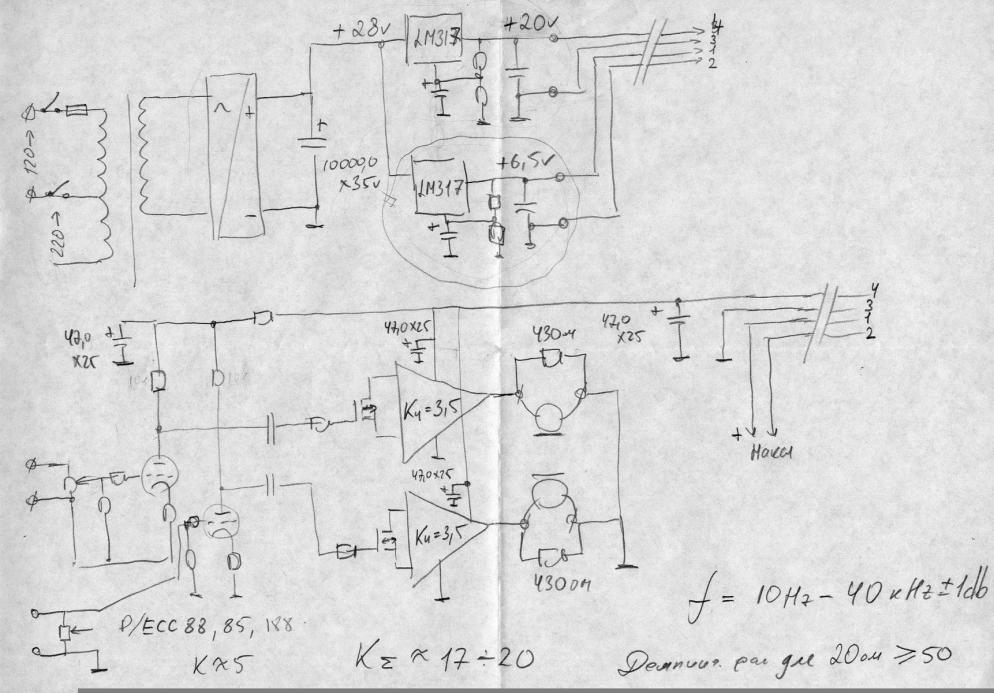 +28v
LM317
+20v
4
3
1
2
120→
220→
~
+
-
+
10000,0
x35v
LM317
+6,5v
+
+
47,0
x25
+
47,0x25
+
430м
47,0
x25
+
4
3
1
2
Ku=3,5
+
Накал
47,0x25
+
Ku=3,5
430ом
P/ECC 88, 85, 188
K≈5
KΣ ≈ 17÷20
f = 10Hz - 40кHz ±1db
для 20ом ≥50